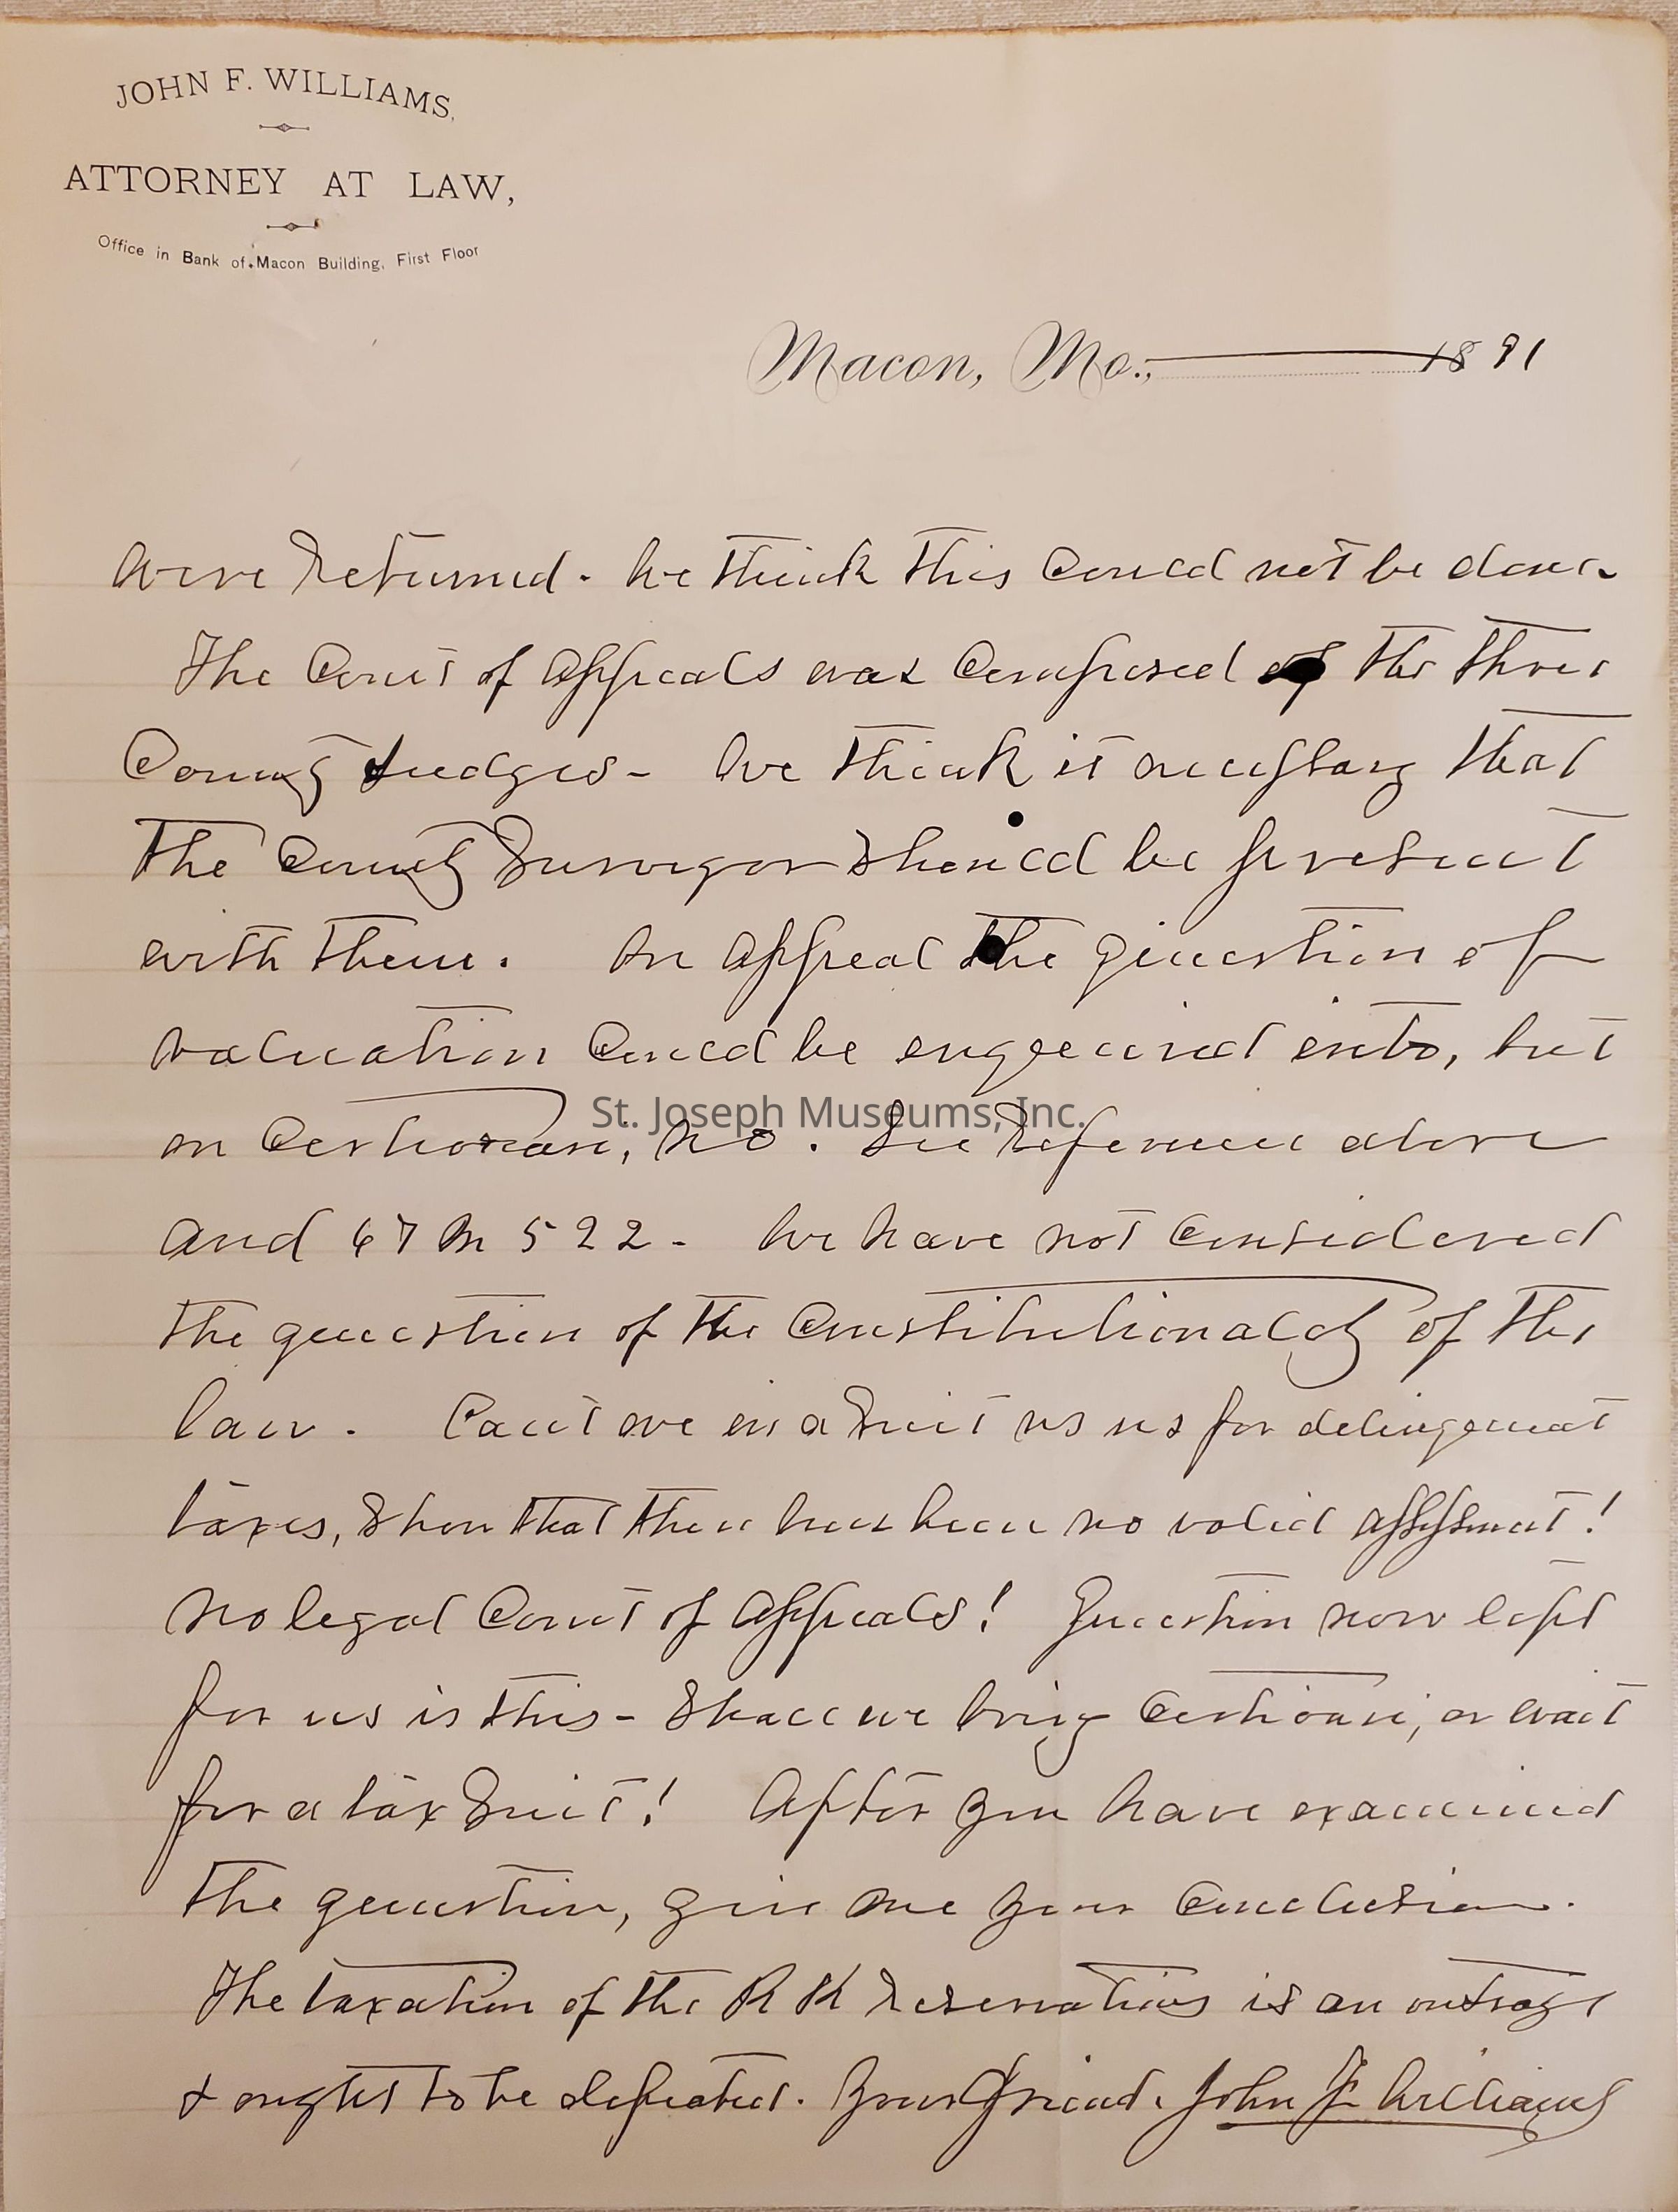 JOHN F. WILLIAMS,
ATTORNEY AT LAW,
Office in Bank of Macon Building, First Floor
Macon, Mo., 1891
were returned. We think this could not be done.
The Court of Appeals was composed of the three
County Judges - We think it necessary that
the County Surveyor should be present
with them. On appeal the question of
valuation could be enqueired into, but
on Certiorari, no. See reference above
St. Joseph Museums, Inc.
and 67 M 522 - We have not considered
the question of the Constitutionality of the
law. Can't we in a suit vs us for delinquent
taxes, show that there has been no valid assessment!
No legal Court of Appeals! Question now left
for us is this - Shall we bring Certiorari, or wait
for a tax suit! After you have examined
the question, give me your conclusion.
The taxation of the R R reservations is an outrage
& ought to be defeated. Your friend. John F Williams